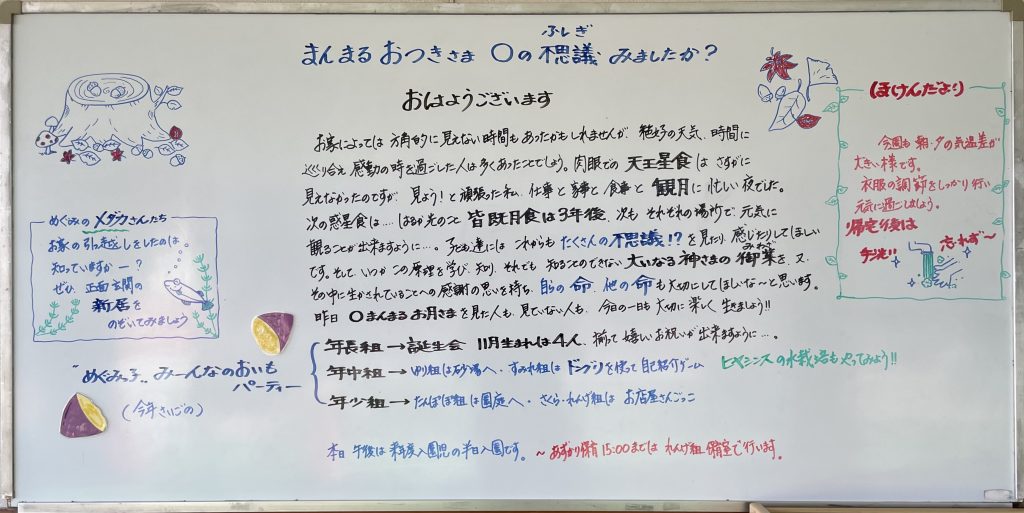 ふしぎ
まんまるおつきさま 〇の不思議みましたか?
おはようございます
お家によっては方角的に見えない時間もあったかもしれませんが、絶好の天気、時間に
巡り合え感動の時を過ごした人は多くあったことでしょう。肉眼での天王星食はさすがに
見えなかったのですが、見よう!と頑張った私、仕事と家事と食事と観月に忙しい夜でした。
次の惑星食は…はるか先のこと 皆既月食は3年後、次も それぞれの場所で、元気に
観ることが出来ますように…。子ども達には これからも たくさんの不思議!?を見たり、感じたりしてほしい
みわざ
です。そして、いつか この原理を学び、知り、それでも 知ることのできない 大いなる神さまの御業を、又
その中に生かされていることへの感謝の思いを持ち、自らの命、他の命も大切にしてほしいな〜と思います。
昨日 〇まんまるお月さまを見た人も、見ていない人も、今日の一日も大切に楽しく生きましょう!!
年長組→誕生会 11月生まれは4人、揃って嬉しいお祝いが出来ますように…。
年中組→ゆり組は砂場へ・すみれ組はドングリを使って自己紹介ゲーム ヒヤシンスの水栽培もやってみよう!!
年少組→たんぽぽ組は園庭へ・さくら・れんげ組は お店屋さんごっこ
本日 午後は来年度入園児の半日入園です。〜あずかり保育15:00までは れんげ組保育室で行います。
めぐみのメダカさんたち
お家の引っ越しをしたのは。
知っていますかー?
ぜひ、正面玄関の
新居を
のぞいてみましょう
"めぐみっ子"みーんなのおいも
パーティー
(今年さいごの)
ほけんだより
今週も朝・夕の気温差が
大きい様です。
衣服の調節をしっかり行い
元気に過ごしましょう。
帰宅後は
手洗い
忘れず〜